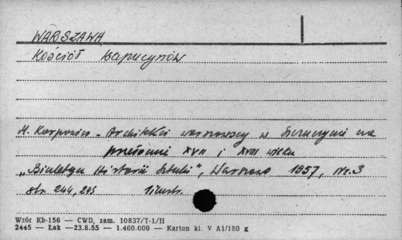 WARSZAWA
Kościół Kapucynów
M. Karpowicz - Architekci warszawscy w Szczuczynie na
przełomie XVII i XVIII wieku
„Biuletyn Historii Sztuki", Warszawa 1957, Nr. 3
str. 244, 245 1 ilustr.
Wzór Kb-156 — CWD, zam. 10837/T-1/II
2445 — Łak —23.8.55 — 1.460.000 — Karton kl. V A1/180 g